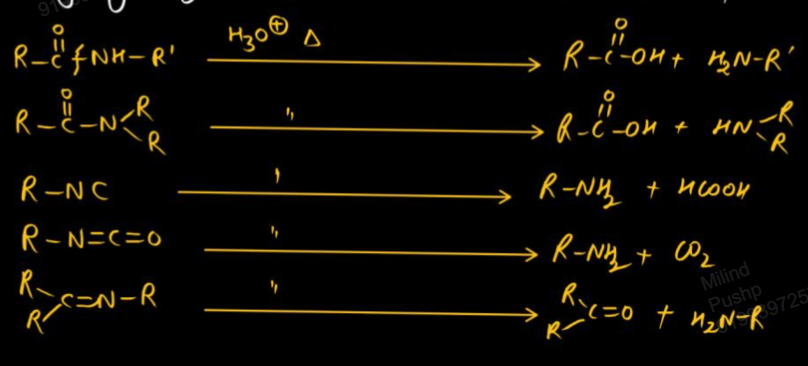 R-C(=O)-NH-R' H₃O⊕ Δ → R-C(=O)-OH + H₂N-R'
R-C(=O)-N(R)(R) " → R-C(=O)-OH + HN(R)(R)
R-NC " → R-NH₂ + HCOOH
R-N=C=O " → R-NH₂ + CO₂
(R)(R)C=N-R " → (R)(R)C=O + H₂N-R
Milind
Pushp